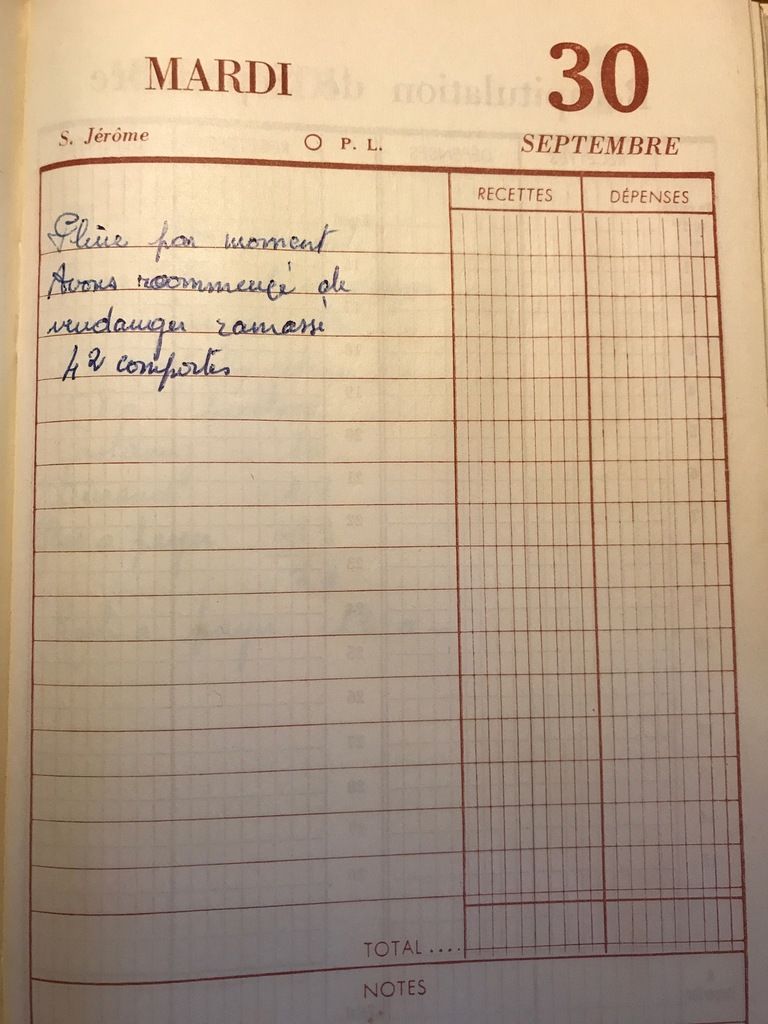 MARDI 30
S. Jérôme O P. L. SEPTEMBRE
RECETTES DÉPENSES
Pluie par moment
Avons recommencé de
vendanger ramassé
42 comportes
TOTAL ....
NOTES